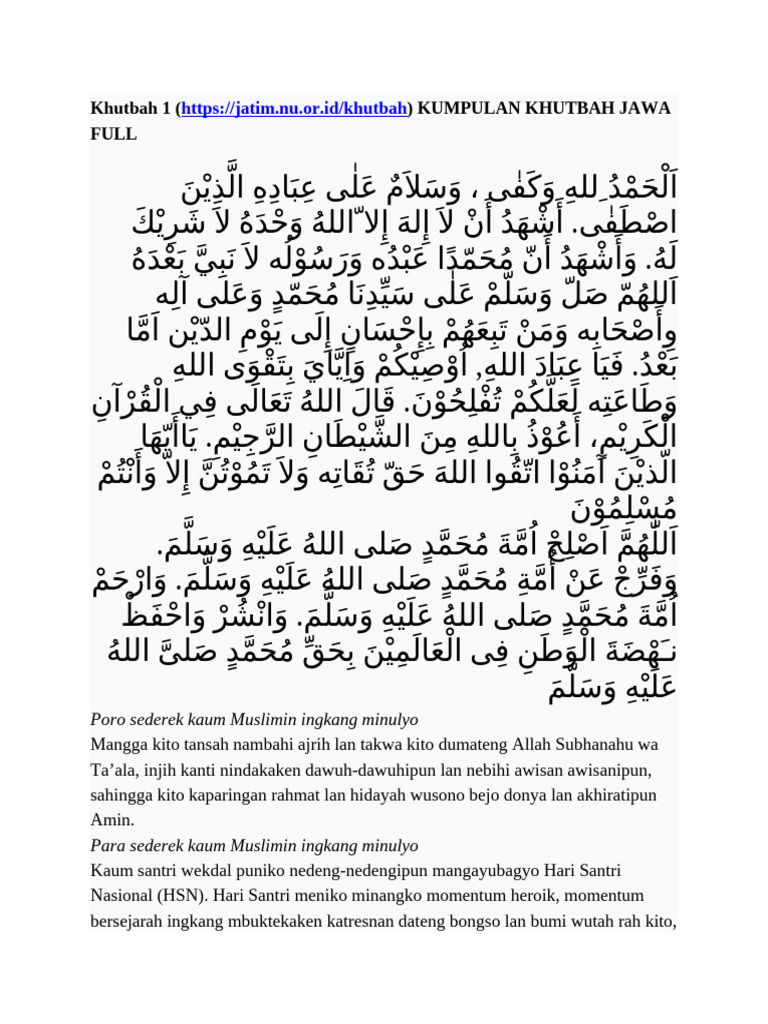 Khutbah 1 (https://jatim.nu.or.id/khutbah) KUMPULAN KHUTBAH JAWA
FULL
اَلْحَمْدُ ِللهِ وَكَفٰى ، وَسَلاَمٌ عَلٰى عِبَادِهِ الَّذِيْنَ
اصْطَفٰى. أَشْهَدُ أَنْ لاَ إِلهَ إِلا ّاللهُ وَحْدَهُ لاَ شَرِيْكَ
لَهُ. وَأَشْهَدُ أَنّ مُحَمّدًا عَبْدُه وَرَسُوْلُه لاَ نَبِيَّ بَعْدَهُ
اَللهُمّ صَلّ وَسَلّمْ عَلٰى سَيِّدِنَا مُحَمّدٍ وَعَلٰى آلِه
وِأَصْحَابِه وَمَنْ تَبِعَهُمْ بِإِحْسَانٍ إِلَى يَوْمِ الدّيْن اَمَّا
بَعْدُ. فَيَا عِبَادَ اللهِ, اُوْصِيْكُمْ وَاِيَّايَ بِتَقْوَى اللهِ
وَطَاعَتِه لَعَلَّكُمْ تُفْلِحُوْنَ. قَالَ اللهُ تَعَالَى فِي الْقُرْآنِ
الْكَرِيْمِ، أَعُوْذُ بِاللهِ مِنَ الشَّيْطَانِ الرَّجِيْمِ. يَاأَيّهَا
الّذيْنَ آمَنُوْا اتّقُوا اللهَ حَقّ تُقَاتِه وَلاَ تَمُوْتُنَّ إِلاّ وَأَنْتُمْ
مُسْلِمُوْنَ
اَللّٰهُمَّ اَصْلِحْ اُمَّةَ مُحَمَّدٍ صَلى اللهُ عَلَيْهِ وَسَلَّمَ.
وَفَرِّجْ عَنْ أُمَّةِ مُحَمَّدٍ صَلى اللهُ عَلَيْهِ وَسَلَّمَ. وَارْحَمْ
اُمَّةَ مُحَمَّدٍ صَلى اللهُ عَلَيْهِ وَسَلَّمَ. وَانْشُرْ وَاحْفَظْ
نـَهْضَةَ الْوَطَنِ فِى الْعَالَمِيْنَ بِحَقِّ مُحَمَّدٍ صَلىَّ اللهُ
عَلَيْهِ وَسَلَّمَ
Poro sederek kaum Muslimin ingkang minulyo
Mangga kito tansah nambahi ajrih lan takwa kito dumateng Allah Subhanahu wa
Ta’ala, injih kanti nindakaken dawuh-dawuhipun lan nebihi awisan awisanipun,
sahingga kito kaparingan rahmat lan hidayah wusono bejo donya lan akhiratipun
Amin.
Para sederek kaum Muslimin ingkang minulyo
Kaum santri wekdal puniko nedeng-nedengipun mangayubagyo Hari Santri
Nasional (HSN). Hari Santri meniko minangko momentum heroik, momentum
bersejarah ingkang mbuktekaken katresnan dateng bongso lan bumi wutah rah kito,